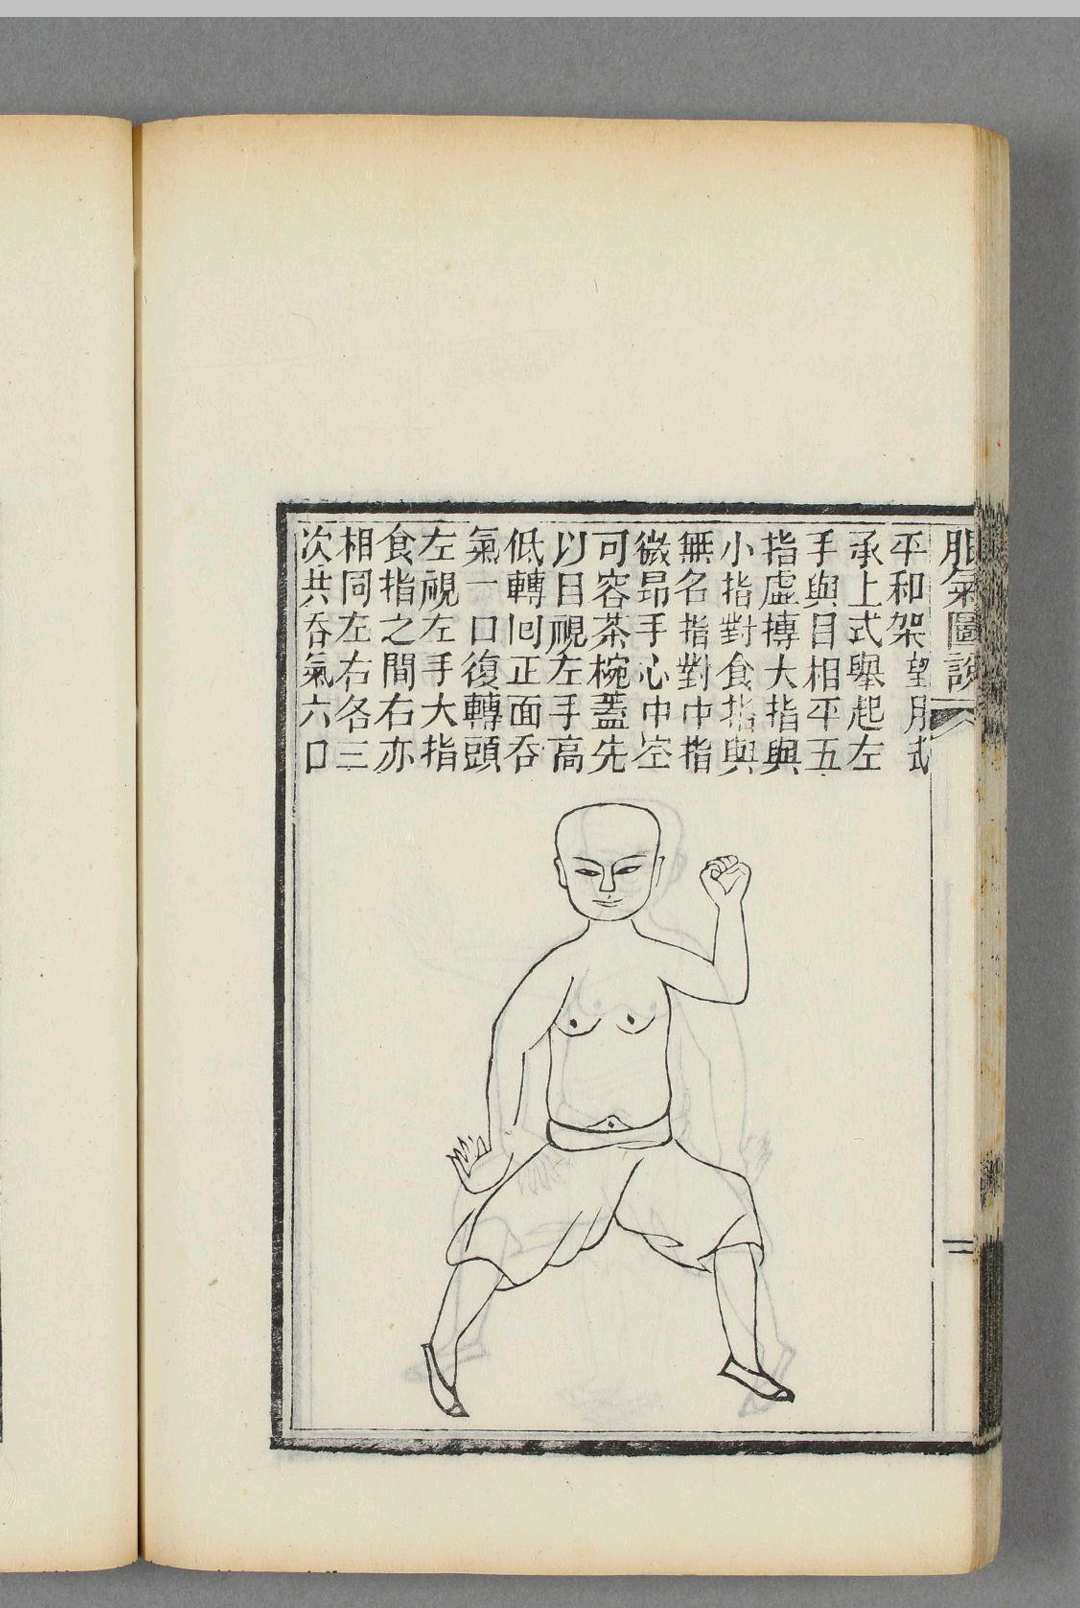 服氣圖說
平和架望月式
承上式舉起左
手與目相平五
指虛摶大指與
小指對食指與
無名指對中指
微昂手心中空
可容茶椀蓋先
以目視左手高
低轉回正面吞
氣一口復轉頭
左視左手大指
食指之間右亦
相同左右各三
次共吞氣六口
二